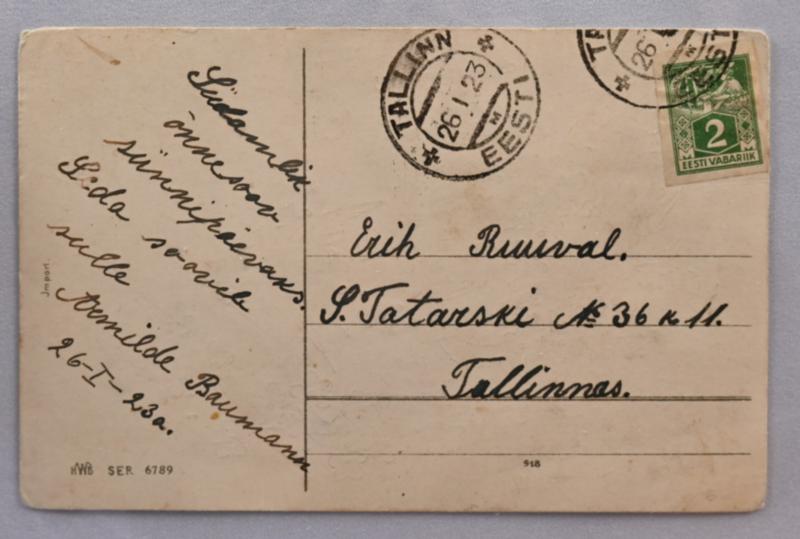 Südamlik
õnnesoov
sünnipäevaks.
Seda soovib
sulle
Armilde Baumann
26-I-23a.
Import.
HWB SER 6789
TALLINN
26.I.23
M
EESTI
TA
26
M
EESTI
2
EESTI VABARIIK
Erih Ruuval.
S. Tatarski № 36 k 11.
Tallinnas.
918